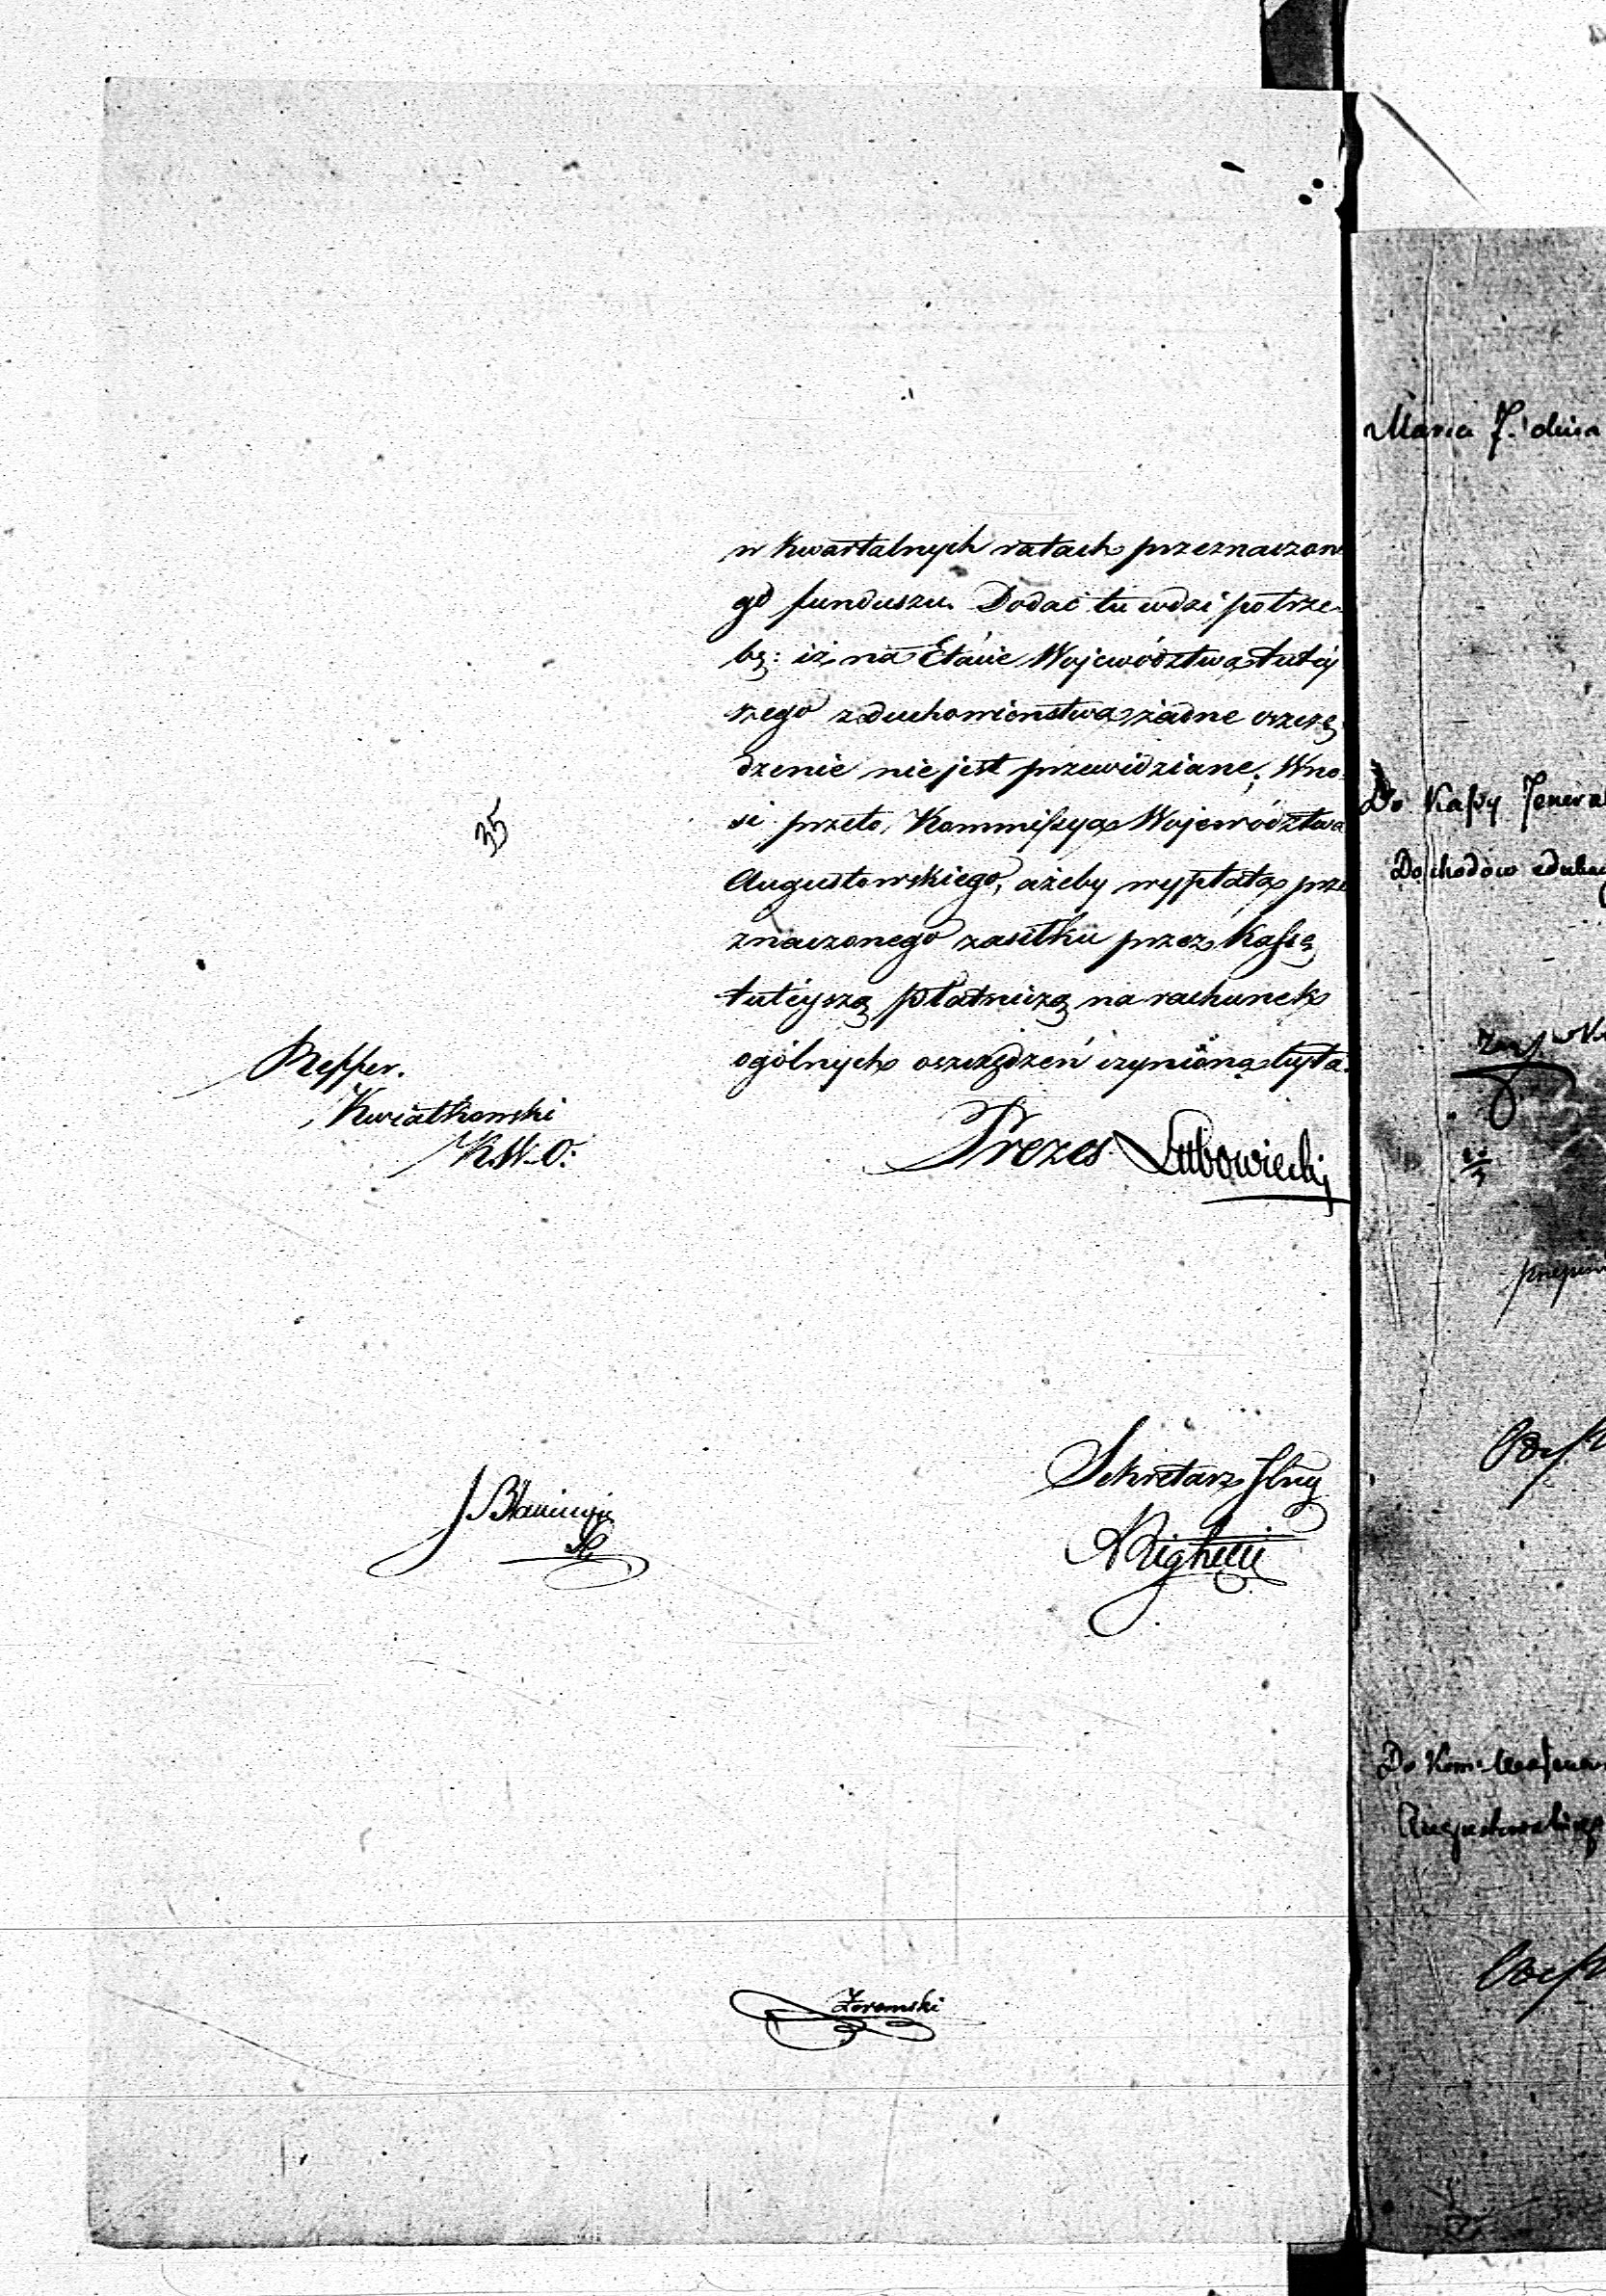 w kwartalnych ratach przeznaczon
go funduszu. Dodać tu widzi potrze-
bę: iż na Etacie Województwa tutéy
szego z duchowieństwa żadne oszczę-
dzenie nie jest przewidziane; Wno-
si przeto, Kommissya Województwa
Augustowskiego, ażeby wypłata prze
znaczonego zasiłku przez Kassę
tutéyszą płatniczą na rachunek
ogólnych oszczędzeń czynioną była.
Prezes Lubowiecki
35
Reffer.
Kwiatkowski
K.W.O:
Sekretarz Jlny
ARighetti
Zaremski
Do Kassy Jeneral
Dochodów eduka
Do Kom:
Augustowskiego